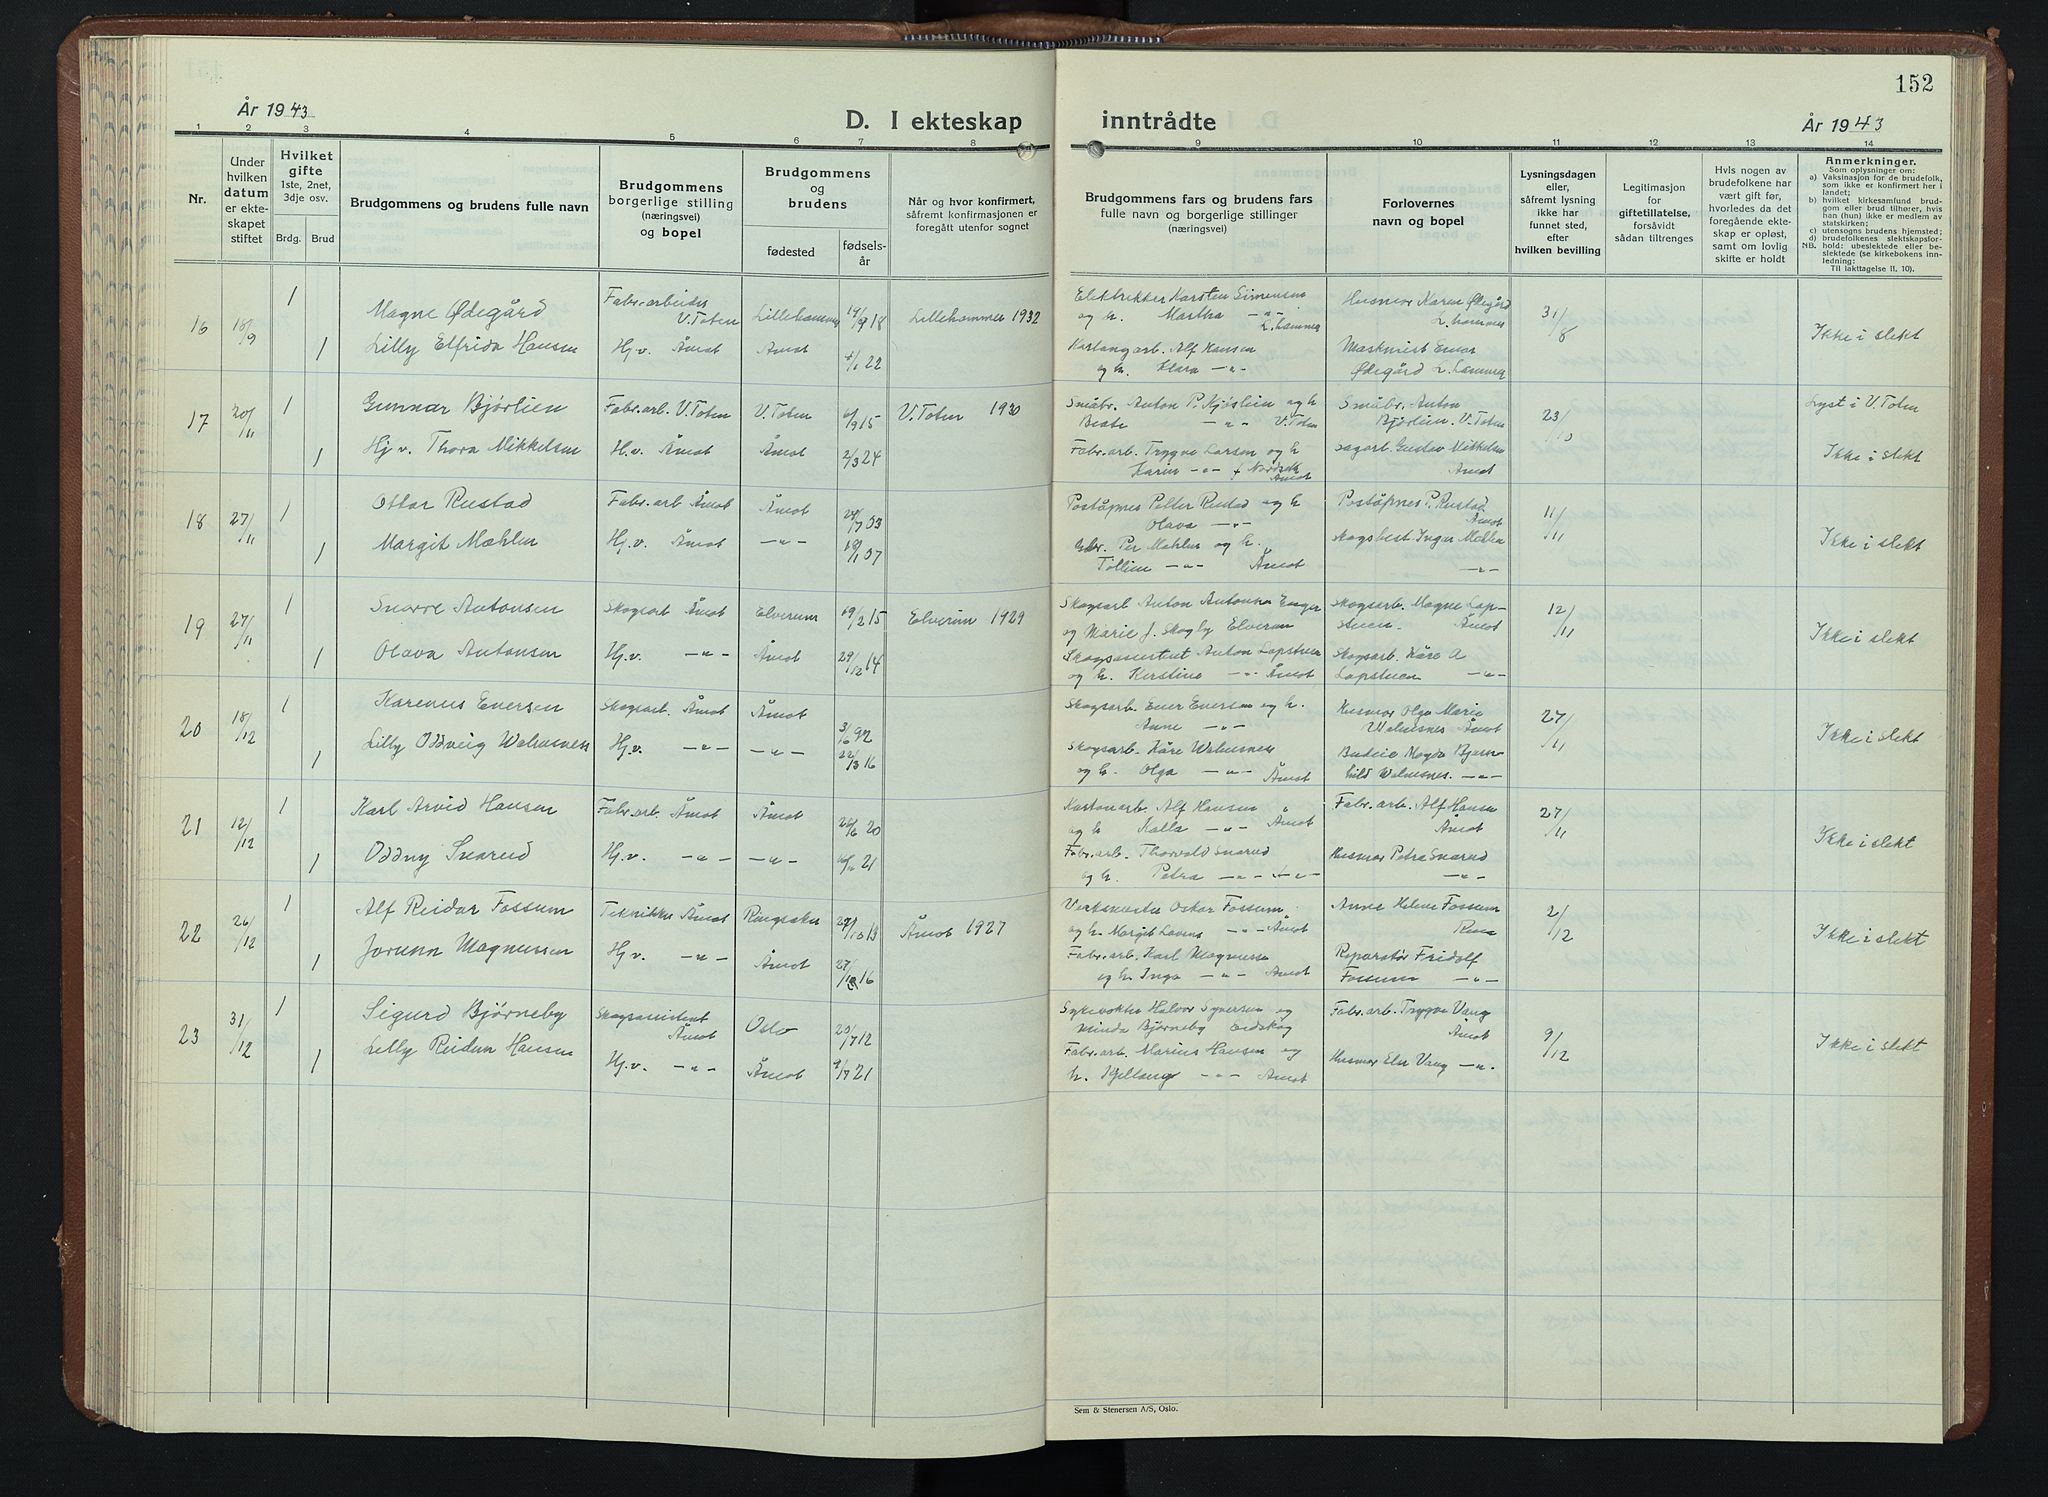 152
År 1943
D. I ekteskap
inntrådte
År 1943
1 2 3 4 5 6 7 8 9 10 11 12 13 14
Nr.
Under
hvilken
datum
er ekte-
skapet
stiftet
Hvilket
gifte
1ste, 2net,
3dje osv.
Brdg. Brud
Brudgommens og brudens fulle navn
Brudgommens
borgerlige stilling
(næringsvei)
og bopel
Brudgommens
og
brudens
fødested
fødsels-
år
Når og hvor konfirmert,
såfremt konfirmasjonen er
foregått utenfor sognet
Brudgommens fars og brudens fars
fulle navn og borgerlige stillinger
(næringsvei)
Forlovernes
navn og bopel
Lysningsdagen
eller,
såfremt lysning
ikke har
funnet sted,
efter
hvilken bevilling
Legitimasjon
for
giftetillatelse,
forsåvidt
sådan tiltrenges
Hvis nogen av
brudefolkene har
vært gift før,
hvorledes da det
foregående ekte-
skap er opløst,
samt om lovlig
skifte er holdt
Anmerkninger.
Som oplysninger om:
a) Vaksinasjon for de brudefolk,
som ikke er konfirmert her i
landet;
b) hvilket kirkesamfund brud-
gom eller brud tilhører, hvis
han (hun) ikke er medlem av
statskirken;
c) utensogns brudens hjemsted;
d) brudefolkenes slektskapsfor-
NB. hold: ubeslektede eller be-
slektede (se kirkebokens inn-
ledning:
Til iakttagelse II, 10).
16 18/9 1 Magne Ødegård Fabr.arbeider V.Toten Lillehammer 14/9 18 Lillehammer 1932
Elektrikker Karsten Simensen
og h. Martha -"- L.hammer
Husmor Karen Ødegård
L. hammer
31/8
Ikke i slekt
1 Lilly Elfrida Hansen Hj.v. Åmot Åmot 4/1 22
Alf Hansen
og h. Klara -"-
Maskinist Einar
Ødegård L. hammer
17 20/11 1 Gunnar Bjørlien Fabr.arb. V.Toten V.Toten 9 15 V.Toten 1930
Småbr. Anton P. og h
Beate -"- V.Toten
Småbr. Anton
Bjørlien. V.Toten
23/10
Lyst i V.Toten
1 Hj v. Thora Mikkelsen H.v. Åmot Åmot 2/3 24
Fabr.arb. Trygve Larsen og h
Karin -"-
Åmot
sagarb. Gustav Mikkelsen
Åmot
Ikke i slekt
18 27/11 1 Ottar Rustad Fabr.arb Åmot Åmot 7 03
Poståpnes Petter Rustad og h
Olava -"-
Poståpnes P. Rustad
Åmot
11/11
1 Margit Mæhlen Hj.v. Åmot -"- 1 07
Per Mæhlen og h.
Tolline -"- Åmot
skogsbest. Inger
-"-
Ikke i slekt
19 27/11 1 Snorre Antonsen Skogsarb Åmot Elverum 19/2 15 Elverum 1929
Skogsarb Anton Antonsen
og Marie J. Skogly Elverum
Skogsarb. Magne Lap-
stuen. Åmot
12/11
Ikke i slekt
1 Olava Antonsen Hj.v. -"- Åmot 29/12 14
Skogsassistent Anton Lapstuen
og h. Kirstine -"- Åmot
Skogsarb. Kåre A
Lapstuen -"-
20 18/12 1 Karenus Eversen Skogsarb. Åmot Åmot 3/6 92
Skogsarb. Ever Eversen og h.
Anne -"-
Husmor Olga Marie
Walnesnes Åmot
27/11
1 Lilly Oddveig Walnesnes Hj.v. -"- -"- 3 16
Skogsarb. Kåre Walnesnes
og h. Olga -"- Åmot
Budeie Magda Bjørn-
hild Walnesnes. -"-
Ikke i slekt
21 12/12 1 Karl Arvid Hansen Fabr.arb. Åmot Åmot 6 20
Kartonarb. Alf Hansen
og h -"- Åmot
Fabr.arb. Alf Hansen
Åmot
27/11
1 Oddny Snarud Hj.v. -"- -"- 21
Fabr.arb. Thorvald Snarud
og h. Petra -"- -"-
Husmor Petra Snarud
-"-
Ikke i slekt
22 26/12 1 Alf Reidar Fossum Tekniker Åmot Ringsaker 27/10 13 Åmot 1927
Verksmester Oskar Fossum
og h. Margit -"- Åmot
Anne Helene Fossum
Rena
2/12
1 Jorunn Magnussen Hj.v. -"- Åmot 27 16
Fabr.arb. Karl Magnussen
og h Inga -"- Åmot
Reparatør Fridolf
Fossum -"-
Ikke i slekt
23 31/12 1 Sigurd Bjørneby Skogsassistent Åmot Oslo 20/7 12
Sykevokter Halvor Syversen og
Minda Bjørneby Eidskog
Fabr.arb. Trygve Vang
Åmot
9/12
Ikke i slekt
1 Lilly Reidun Hansen Hj.v. -"- Åmot 9/7 21
Fabr.arb. Marius Hansen og
h. -"- Åmot
Husmor Elsa Vang -"-
Sem & Stenersen A/S, Oslo.